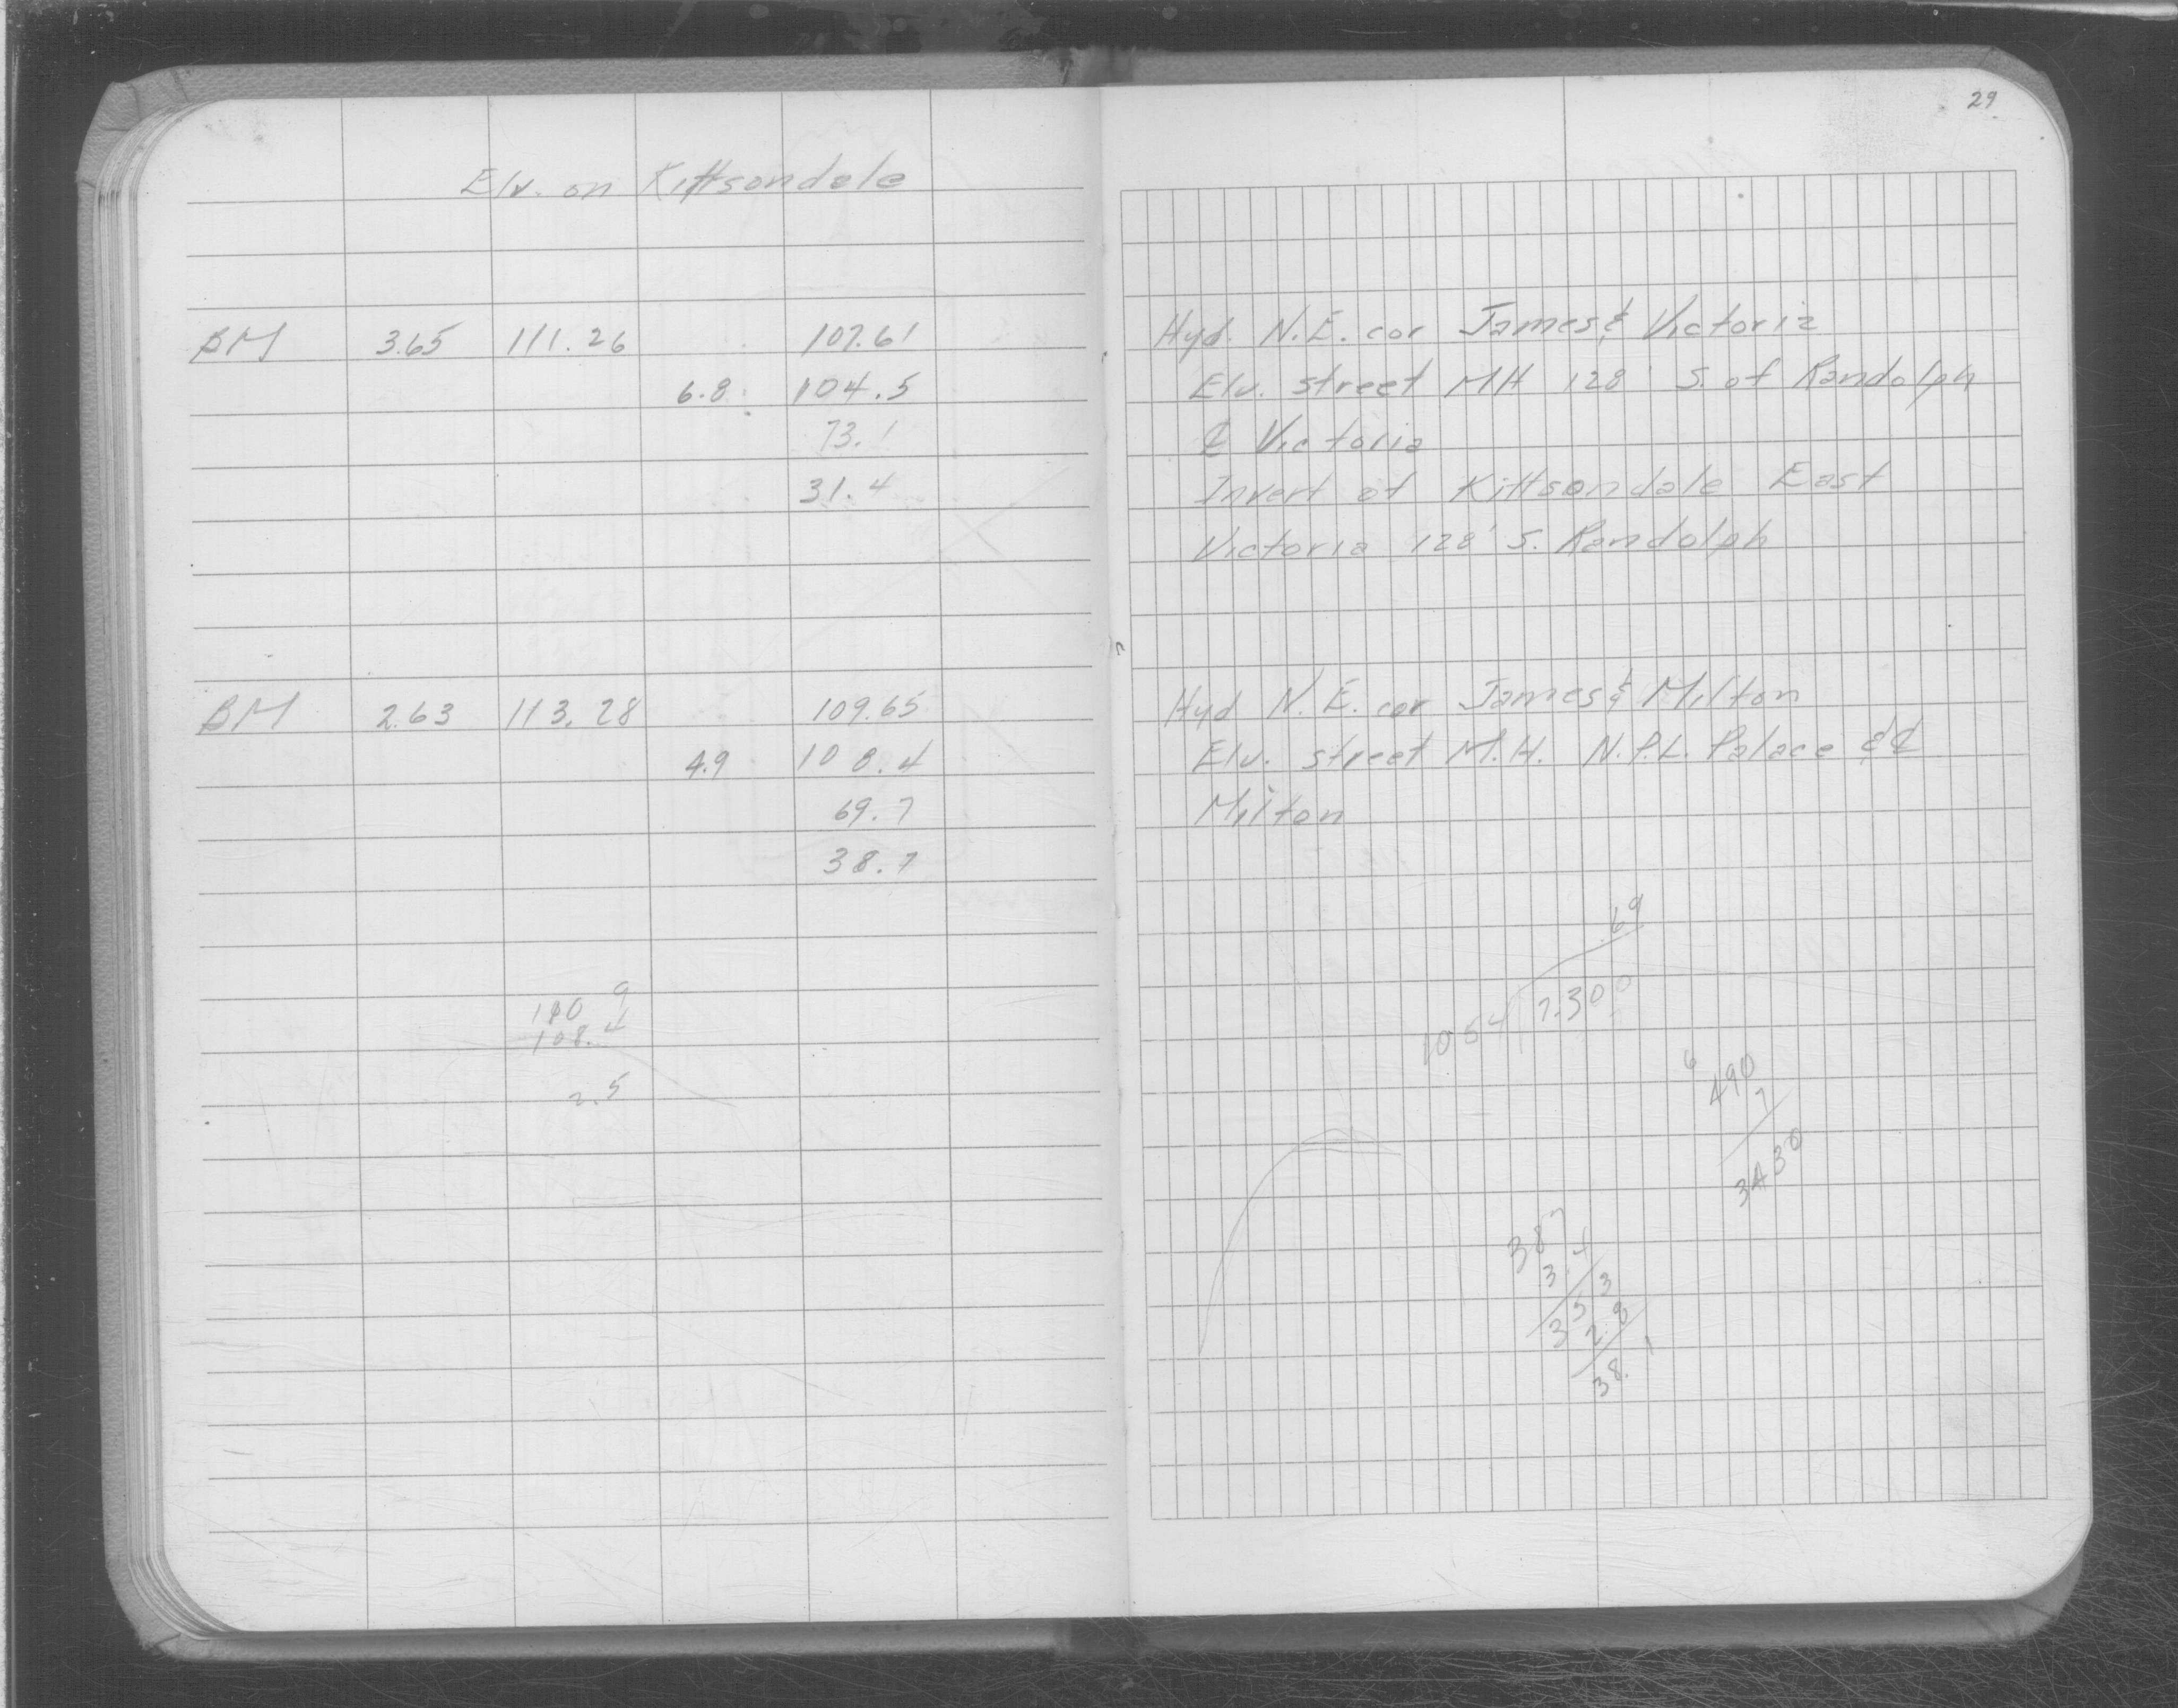 29
Elv. on Kittsondale
BM 3.65 111.26 107.61 Hyd. N.E. cor James & Victoria
6.8 104.5 Elv. street MH 128' S. of Randolph
73.1 ℄ Victoria
31.4 Invert of Kittsondale East
Victoria 128' S. Randolph
BM 2.63 113.28 109.65 Hyd N.E. cor James & Milton
4.9 108.4 Elv. street M.H. N.P.L. Palace & ℄
69.7 Milton
38.7
110 9
108. 4
2.5
.69
1054 7.300
6
490
7
3430
38 7
3. 4
35 3
2 8
38. 1